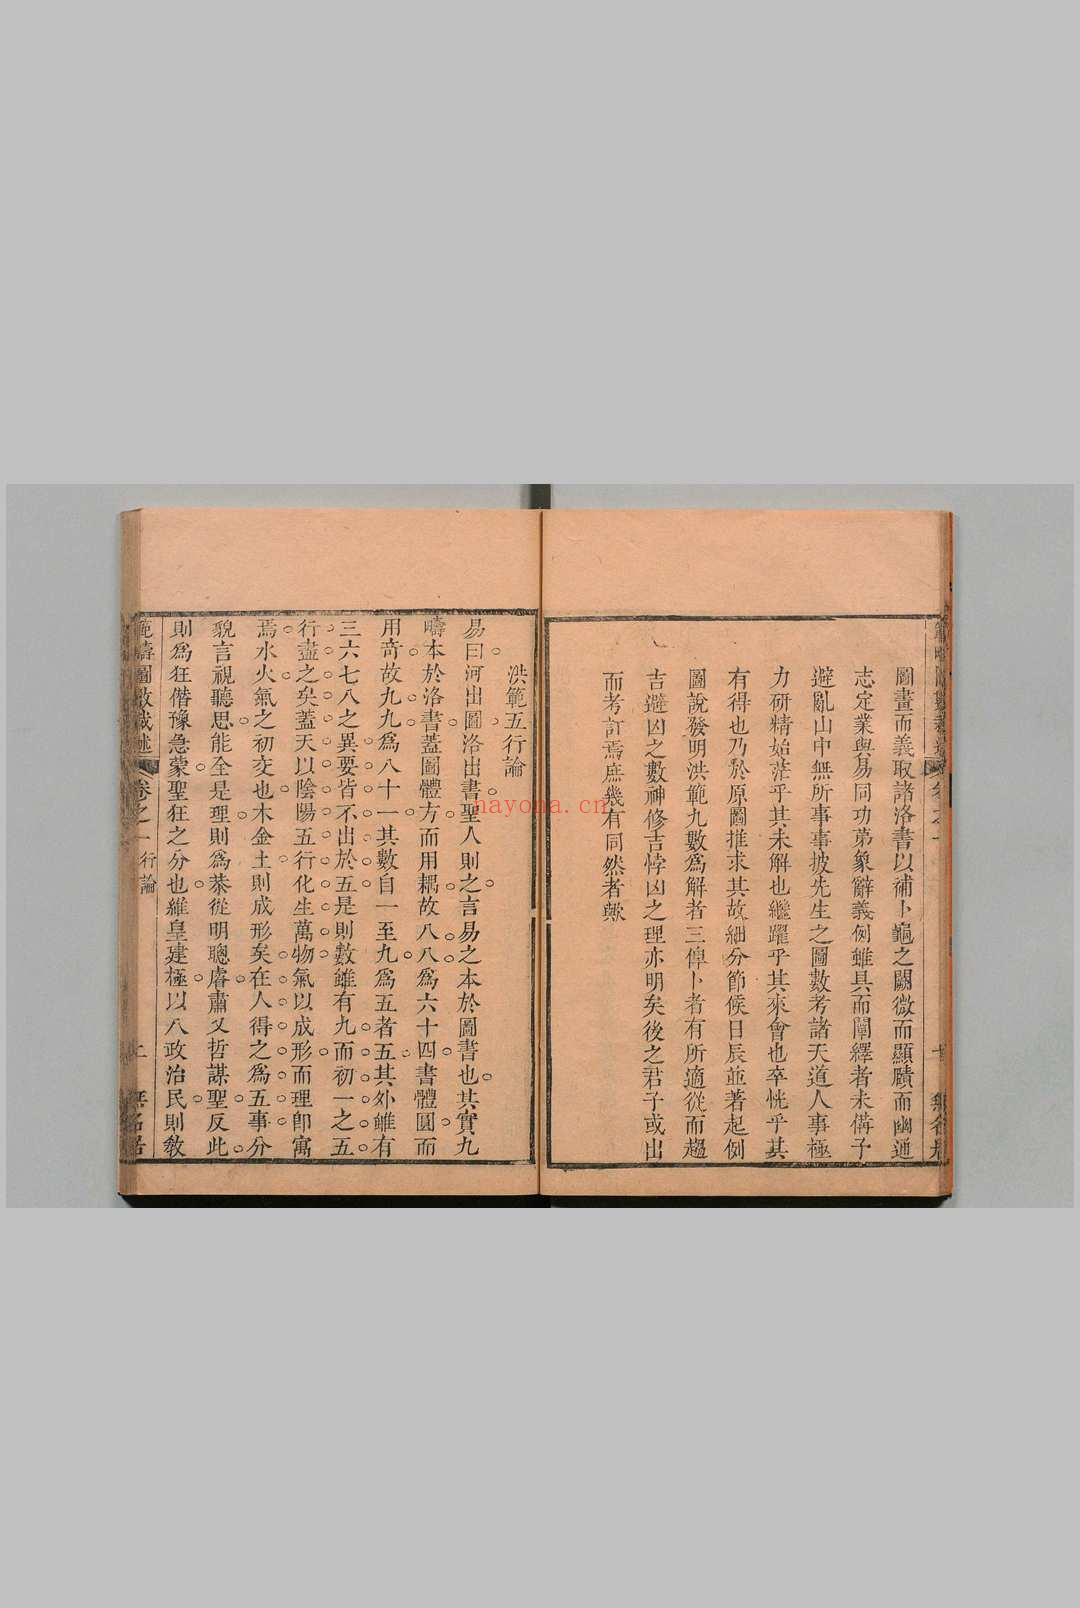 圖畫而義取諸洛書以補卜龜之闕微而顯賾而幽通
志定業與易同功苐象辭義例雖具而闡繹者未備子
避亂山中無所事事披先生之圖數考諸天道人事極
力研精始茫乎其未解也繼躍乎其來會也卒恍乎其
有得也乃於原圖推求其故細分節候日辰並著起例
圖說發明洪範九數為解者三俾卜者有所適從而趨
吉避凶之數神修吉悖凶之理亦明矣後之君子或出
而考訂焉庶幾有同然者歟
洪範五行論
易曰河出圖洛出書聖人則之言易之本於圖書也其實九
疇本於洛書蓋圖體方而用耦故八八為六十四書體圓而
用竒故九九為八十一其數自一至九為五者五其外雖有
三六七八之異要皆不出於五是則數雖有九而初一之五
行盡之矣蓋天以陰陽五行化生萬物氣以成形而理卽寓
焉水火氣之初交也木金土則成形矣在人得之為五事分
貌言視聽思能全是理則為恭從明聰睿肅乂哲謀聖反此
則為狂僭豫急蒙聖狂之分也維皇建極以八政治民則教
範疇圖數截述
卷之一
行論
nayona.cn